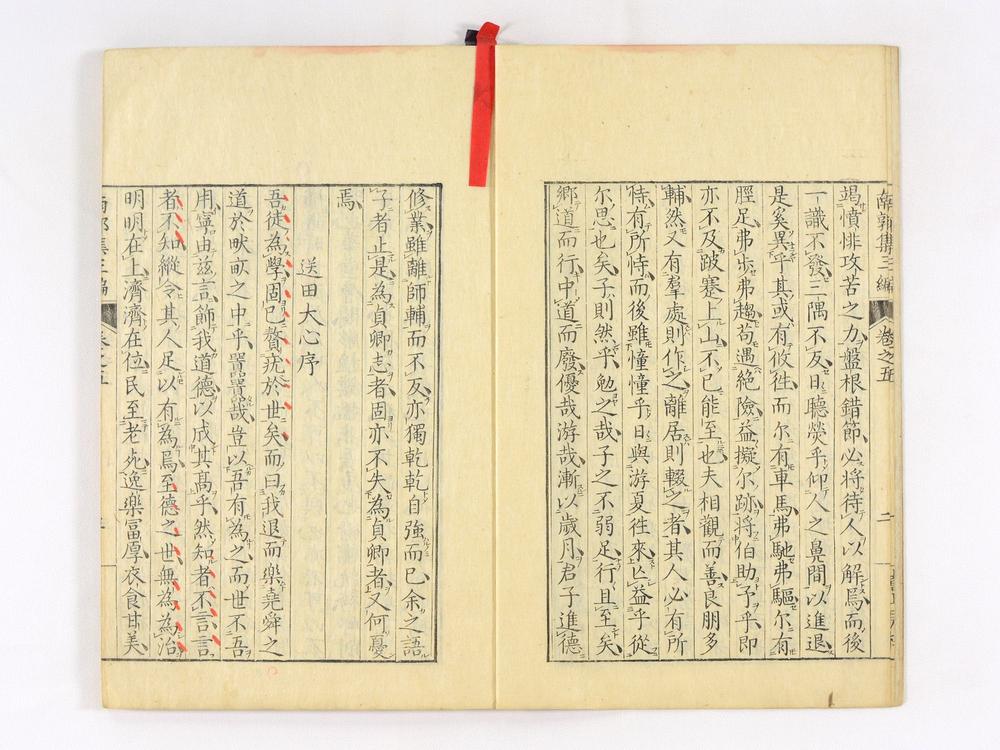 南郭集三編 卷之五 二
竭憤悱攻苦之力盤根錯節必將待人以解焉而後
一識不發三隅不反日聽熒乎仰人之鼻間以進退
是奚異乎其或有攸徃而尔有車馬弗馳弗驅尔有
脛足弗步弗趨苟遇絕險益擬尔跡將伯助予乎即
亦不及跛蹇上山不已能至也夫相觀而善良朋多
輔然又有羣處則作之離居則輟之者其人必有所
恃有所恃而後雖憧憧乎日與游夏徃來亾益乎從
尔思也矣子則然乎勉之哉子之不弱足行且至矣
鄉道而行中道而廢優哉游哉漸以歲月君子進德
修業雖離師輔而不反亦獨乾乾自強而已余之語
子者止是為貞卿志者固亦不失為貞卿者又何憂
焉
送田大心序
吾徒為學固已贅疣於世矣而曰我退而樂堯舜之
道於畎畝之中乎囂囂哉豈以吾有為之而世不吾
用寧由茲言飾我道德以成其高乎然知者不言言
者不知縱令其人足以有為焉至德之世無為為治
明明在上濟濟在位民至老死逸樂冨厚衣食甘美
南郭集三編 卷之五